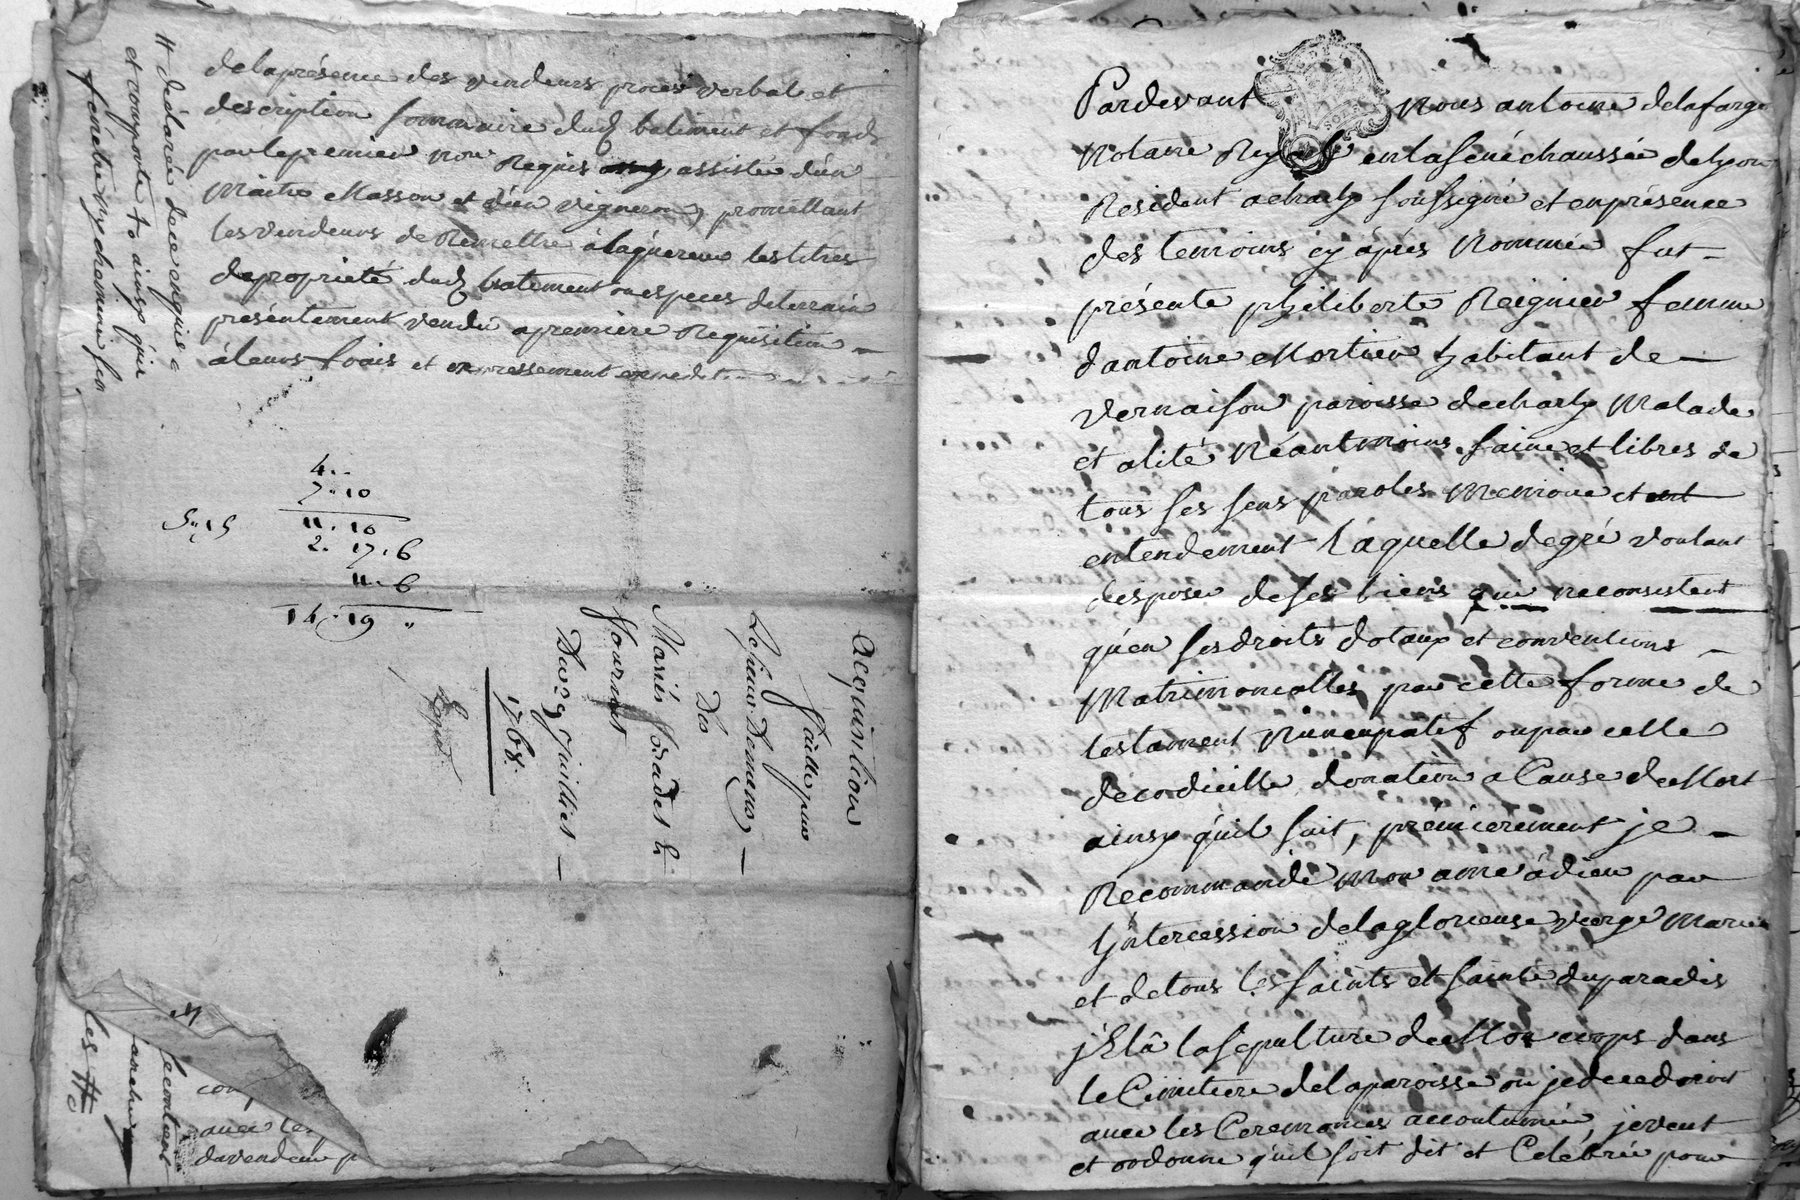 delaprésence des vendeurs procès verbal et
description sommaire dud batiment et fond
par le premier no.re Requis assisté d'un
Maitre Masson et d'un vigneron, promettant
les vendeurs de Remettre à laquéreur les titres
de propriété dud batement ou especes de terrain
présentement vendu a premiere Requisition
à leurs frais et expressement
# déclarée dece enquis
et comporte to ainsy qu'ir
4..
7..10
11..10
2. 17.6
11.6
14.19 "
5..15
Acquisition
faitte par
Le sieur
Des
Mariés &
Du 29 Juilliet
1768.
les #
avec les
davendeur p
Pardevant Nous antoine delafarge
Notaire Royal en la sénéchaussée de lyon
Résident acharly soussigné et en présence
des temoins cy après Nommée fut
présente philiberte Reignier femme
d'antoine Mortier habitant de
vernaison paroisse de charly Malade
et alité Néantmoins saine et libres de
tous ses sens paroles Memoire et ent
entendement Laquelle degré voulant
disposer de ses biens qui neconsistent
qu'en ses droits dotaux et conventions
Matrimonialles par cette forme de
testament Nuncupatif ou par celle
de codicille donation a Cause de Mort
ainsy qu'il suit, premierement je
Recommande mon ame à dieu par
Lyntercession de la glorieuse vierge Marie
et de tous les saints et sainte du paradis
la sepulture de Mon corps dans
le Cimitiere de la paroisse ou je decederoit
avec les Ceremonies accoutumée je veut
et ordonne qu'il soit dit et Celébrée pour